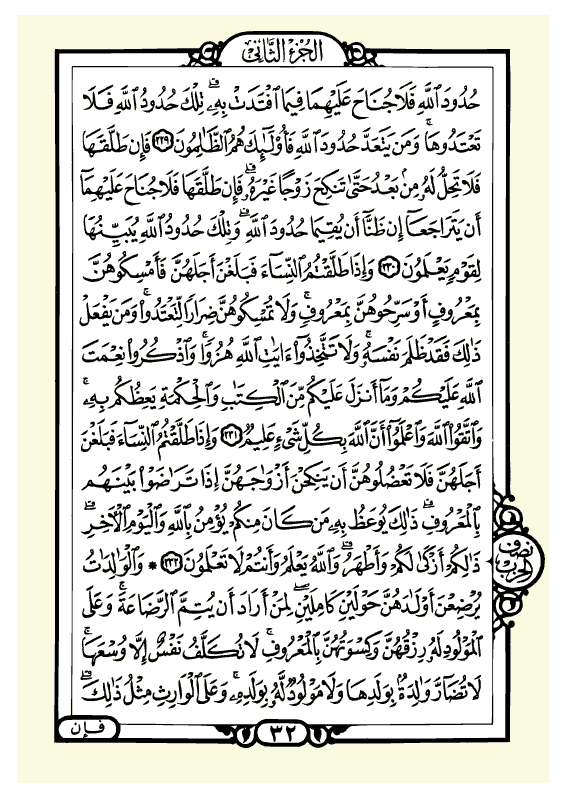 الجزء الثاني
حُدُودَ ٱللَّهِ فَلَا جُنَاحَ عَلَيْهِمَا فِيمَا ٱفْتَدَتْ بِهِۦۗ تِلْكَ حُدُودُ ٱللَّهِ فَلَا
تَعْتَدُوهَاۚ وَمَن يَتَعَدَّ حُدُودَ ٱللَّهِ فَأُوْلَٰٓئِكَ هُمُ ٱلظَّٰلِمُونَ ٢٢٩ فَإِن طَلَّقَهَا
فَلَا تَحِلُّ لَهُۥ مِنۢ بَعْدُ حَتَّىٰ تَنكِحَ زَوْجًا غَيْرَهُۥۗ فَإِن طَلَّقَهَا فَلَا جُنَاحَ عَلَيْهِمَآ
أَن يَتَرَاجَعَآ إِن ظَنَّآ أَن يُقِيمَا حُدُودَ ٱللَّهِۗ وَتِلْكَ حُدُودُ ٱللَّهِ يُبَيِّنُهَا
لِقَوْمٍ يَعْلَمُونَ ٢٣٠ وَإِذَا طَلَّقْتُمُ ٱلنِّسَآءَ فَبَلَغْنَ أَجَلَهُنَّ فَأَمْسِكُوهُنَّ
بِمَعْرُوفٍ أَوْ سَرِّحُوهُنَّ بِمَعْرُوفٍۚ وَلَا تُمْسِكُوهُنَّ ضِرَارًا لِّتَعْتَدُواْۚ وَمَن يَفْعَلْ
ذَٰلِكَ فَقَدْ ظَلَمَ نَفْسَهُۥۚ وَلَا تَتَّخِذُوٓاْ ءَايَٰتِ ٱللَّهِ هُزُوًاۚ وَٱذْكُرُواْ نِعْمَتَ
ٱللَّهِ عَلَيْكُمْ وَمَآ أَنزَلَ عَلَيْكُم مِّنَ ٱلْكِتَٰبِ وَٱلْحِكْمَةِ يَعِظُكُم بِهِۦۚ
وَٱتَّقُواْ ٱللَّهَ وَٱعْلَمُوٓاْ أَنَّ ٱللَّهَ بِكُلِّ شَىْءٍ عَلِيمٌ ٢٣١ وَإِذَا طَلَّقْتُمُ ٱلنِّسَآءَ فَبَلَغْنَ
أَجَلَهُنَّ فَلَا تَعْضُلُوهُنَّ أَن يَنكِحْنَ أَزْوَٰجَهُنَّ إِذَا تَرَٰضَوْاْ بَيْنَهُم
بِٱلْمَعْرُوفِۗ ذَٰلِكَ يُوعَظُ بِهِۦ مَن كَانَ مِنكُمْ يُؤْمِنُ بِٱللَّهِ وَٱلْيَوْمِ ٱلْءَاخِرِۗ
ذَٰلِكُمْ أَزْكَىٰ لَكُمْ وَأَطْهَرُۗ وَٱللَّهُ يَعْلَمُ وَأَنتُمْ لَا تَعْلَمُونَ ٢٣٢ * وَٱلْوَٰلِدَٰتُ
يُرْضِعْنَ أَوْلَٰدَهُنَّ حَوْلَيْنِ كَامِلَيْنِۖ لِمَنْ أَرَادَ أَن يُتِمَّ ٱلرَّضَاعَةَۚ وَعَلَى
ٱلْمَوْلُودِ لَهُۥ رِزْقُهُنَّ وَكِسْوَتُهُنَّ بِٱلْمَعْرُوفِۚ لَا تُكَلَّفُ نَفْسٌ إِلَّا وُسْعَهَاۚ
لَا تُضَآرَّ وَٰلِدَةٌۢ بِوَلَدِهَا وَلَا مَوْلُودٌ لَّهُۥ بِوَلَدِهِۦۚ وَعَلَى ٱلْوَارِثِ مِثْلُ ذَٰلِكَۗ
نصف الحزب
٣٢
فإن